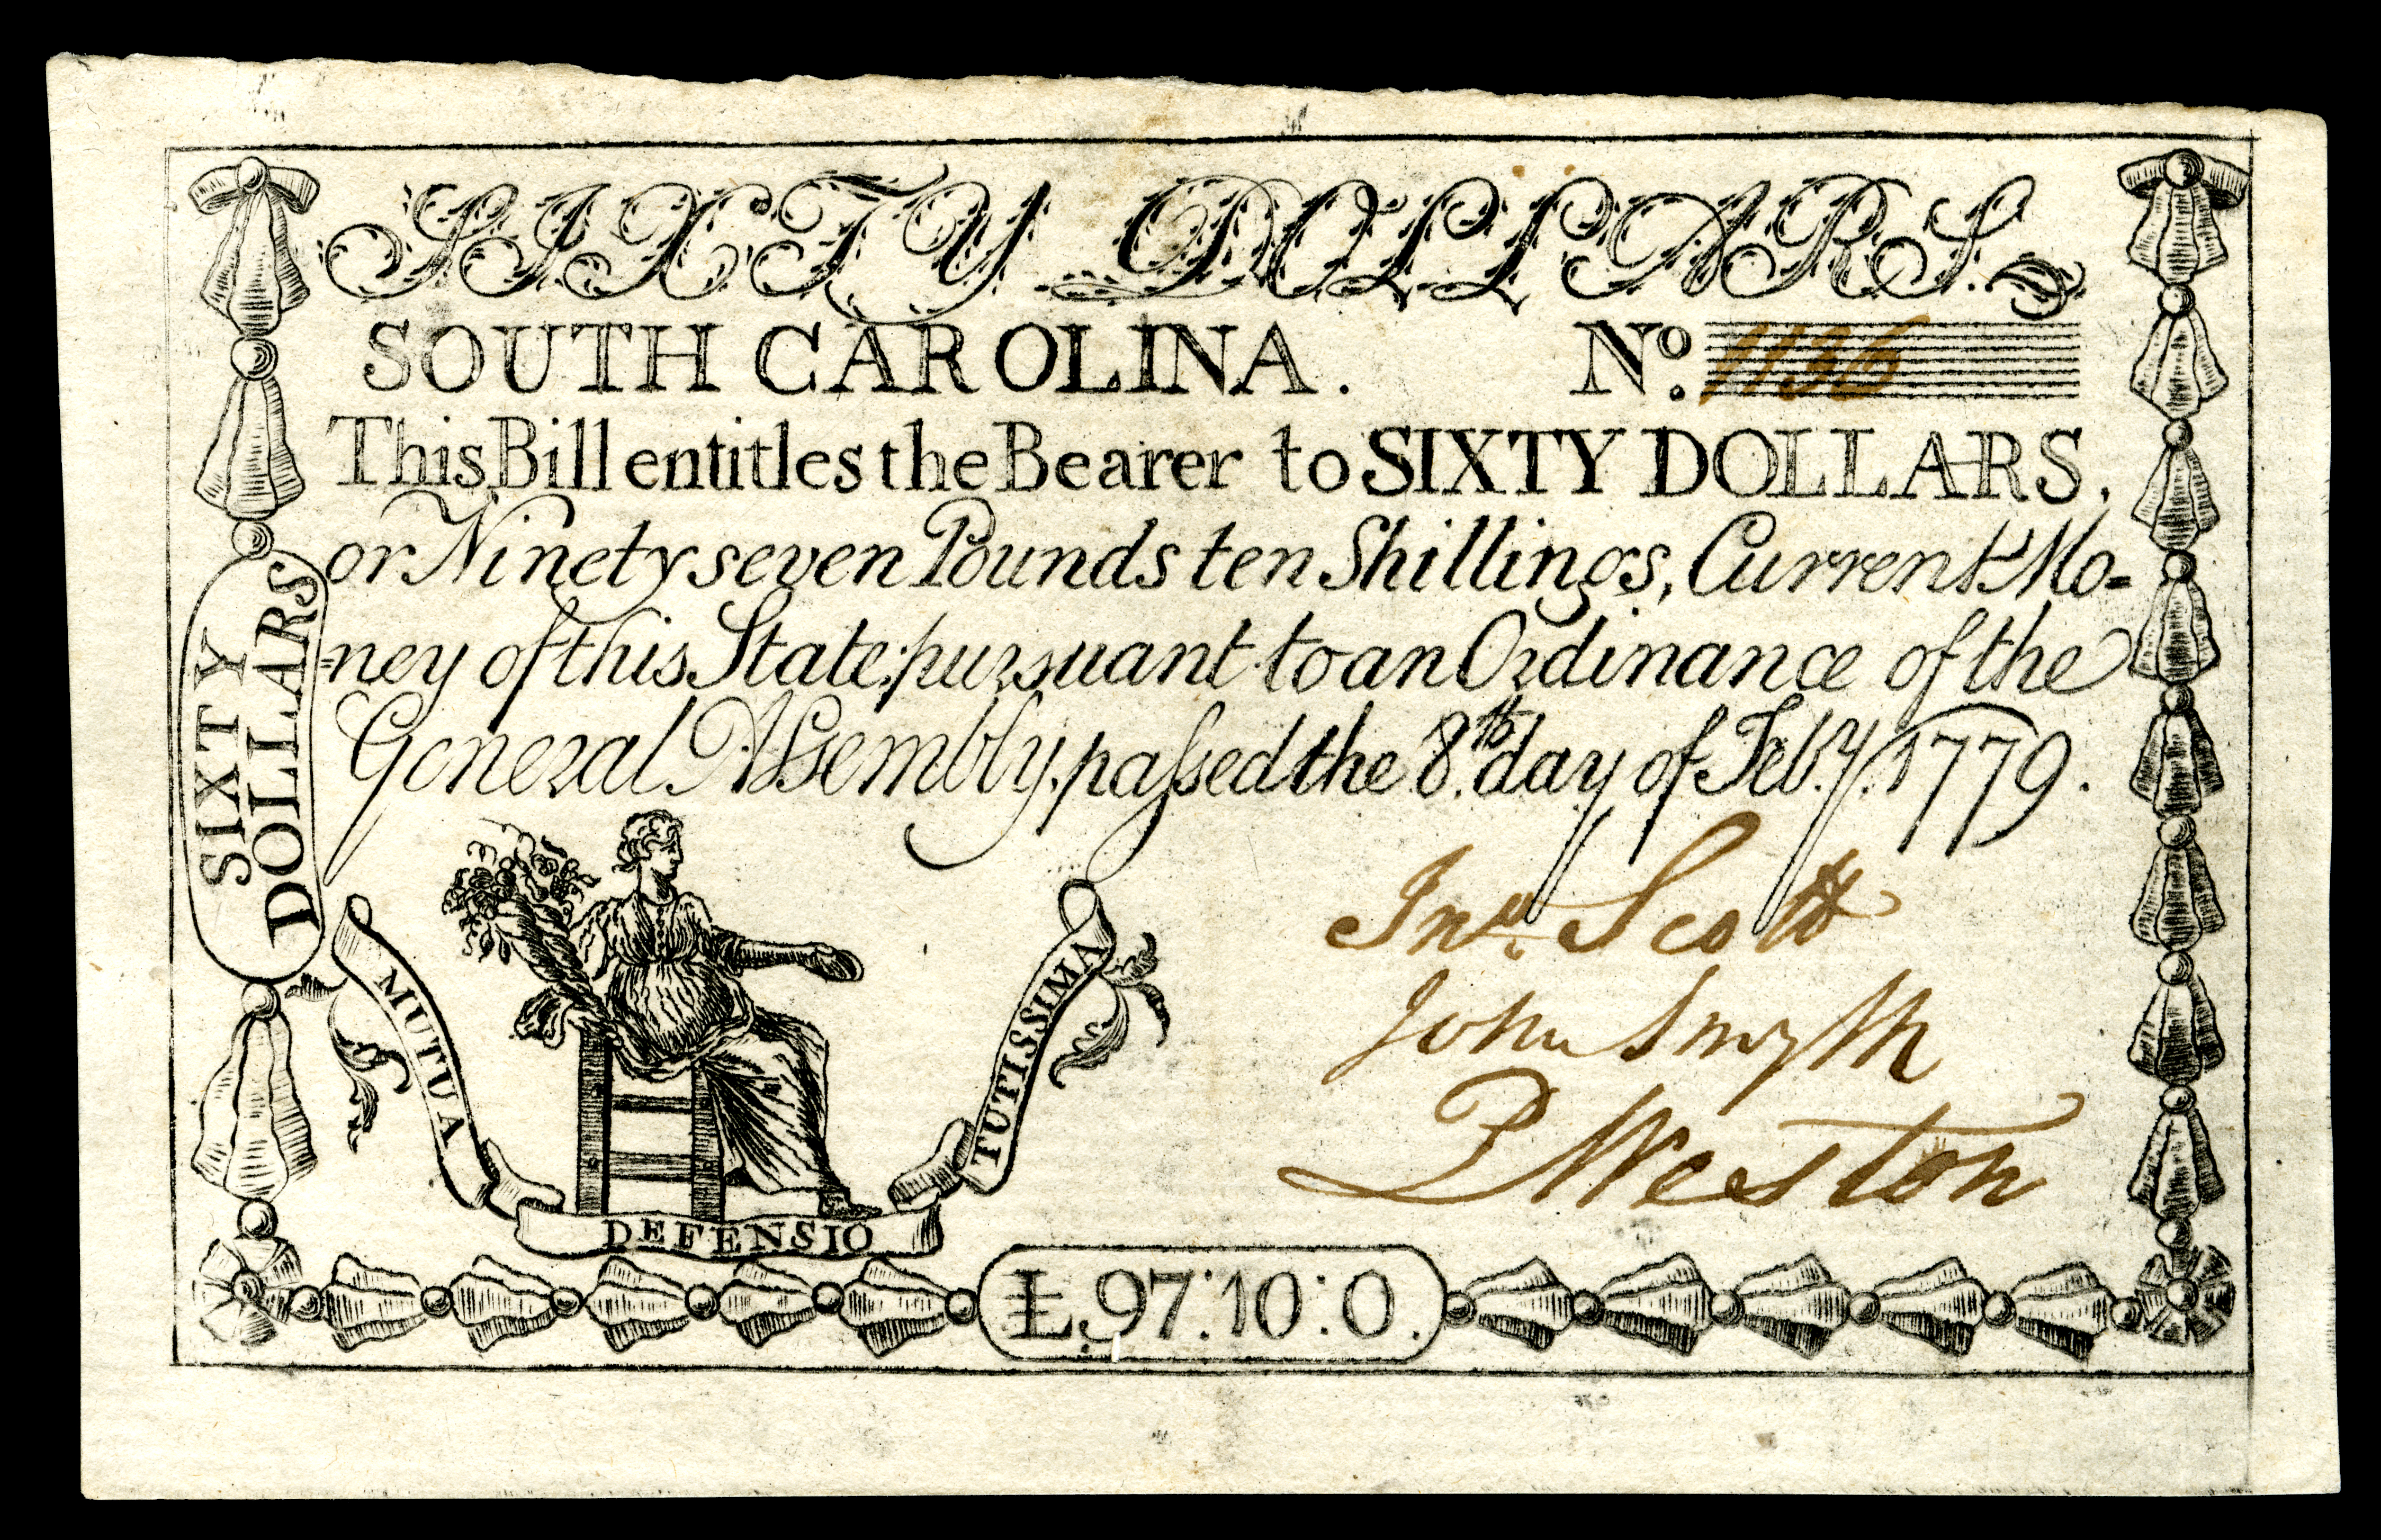 SIXTY DOLLARS.
SOUTH CAROLINA. No. 1136
This Bill entitles the Bearer to SIXTY DOLLARS,
or Ninety seven Pounds ten Shillings, Current Mo=
=ney of this State, pursuant to an Ordinance of the
General Assembly, paſsed the 8.th day of Feb.y 1779.
SIXTY
DOLLARS
Jno. Scott
John Smyth
P Weston
MUTUA
DEFENSIO
TUTISSIMA
£.97:10:0.